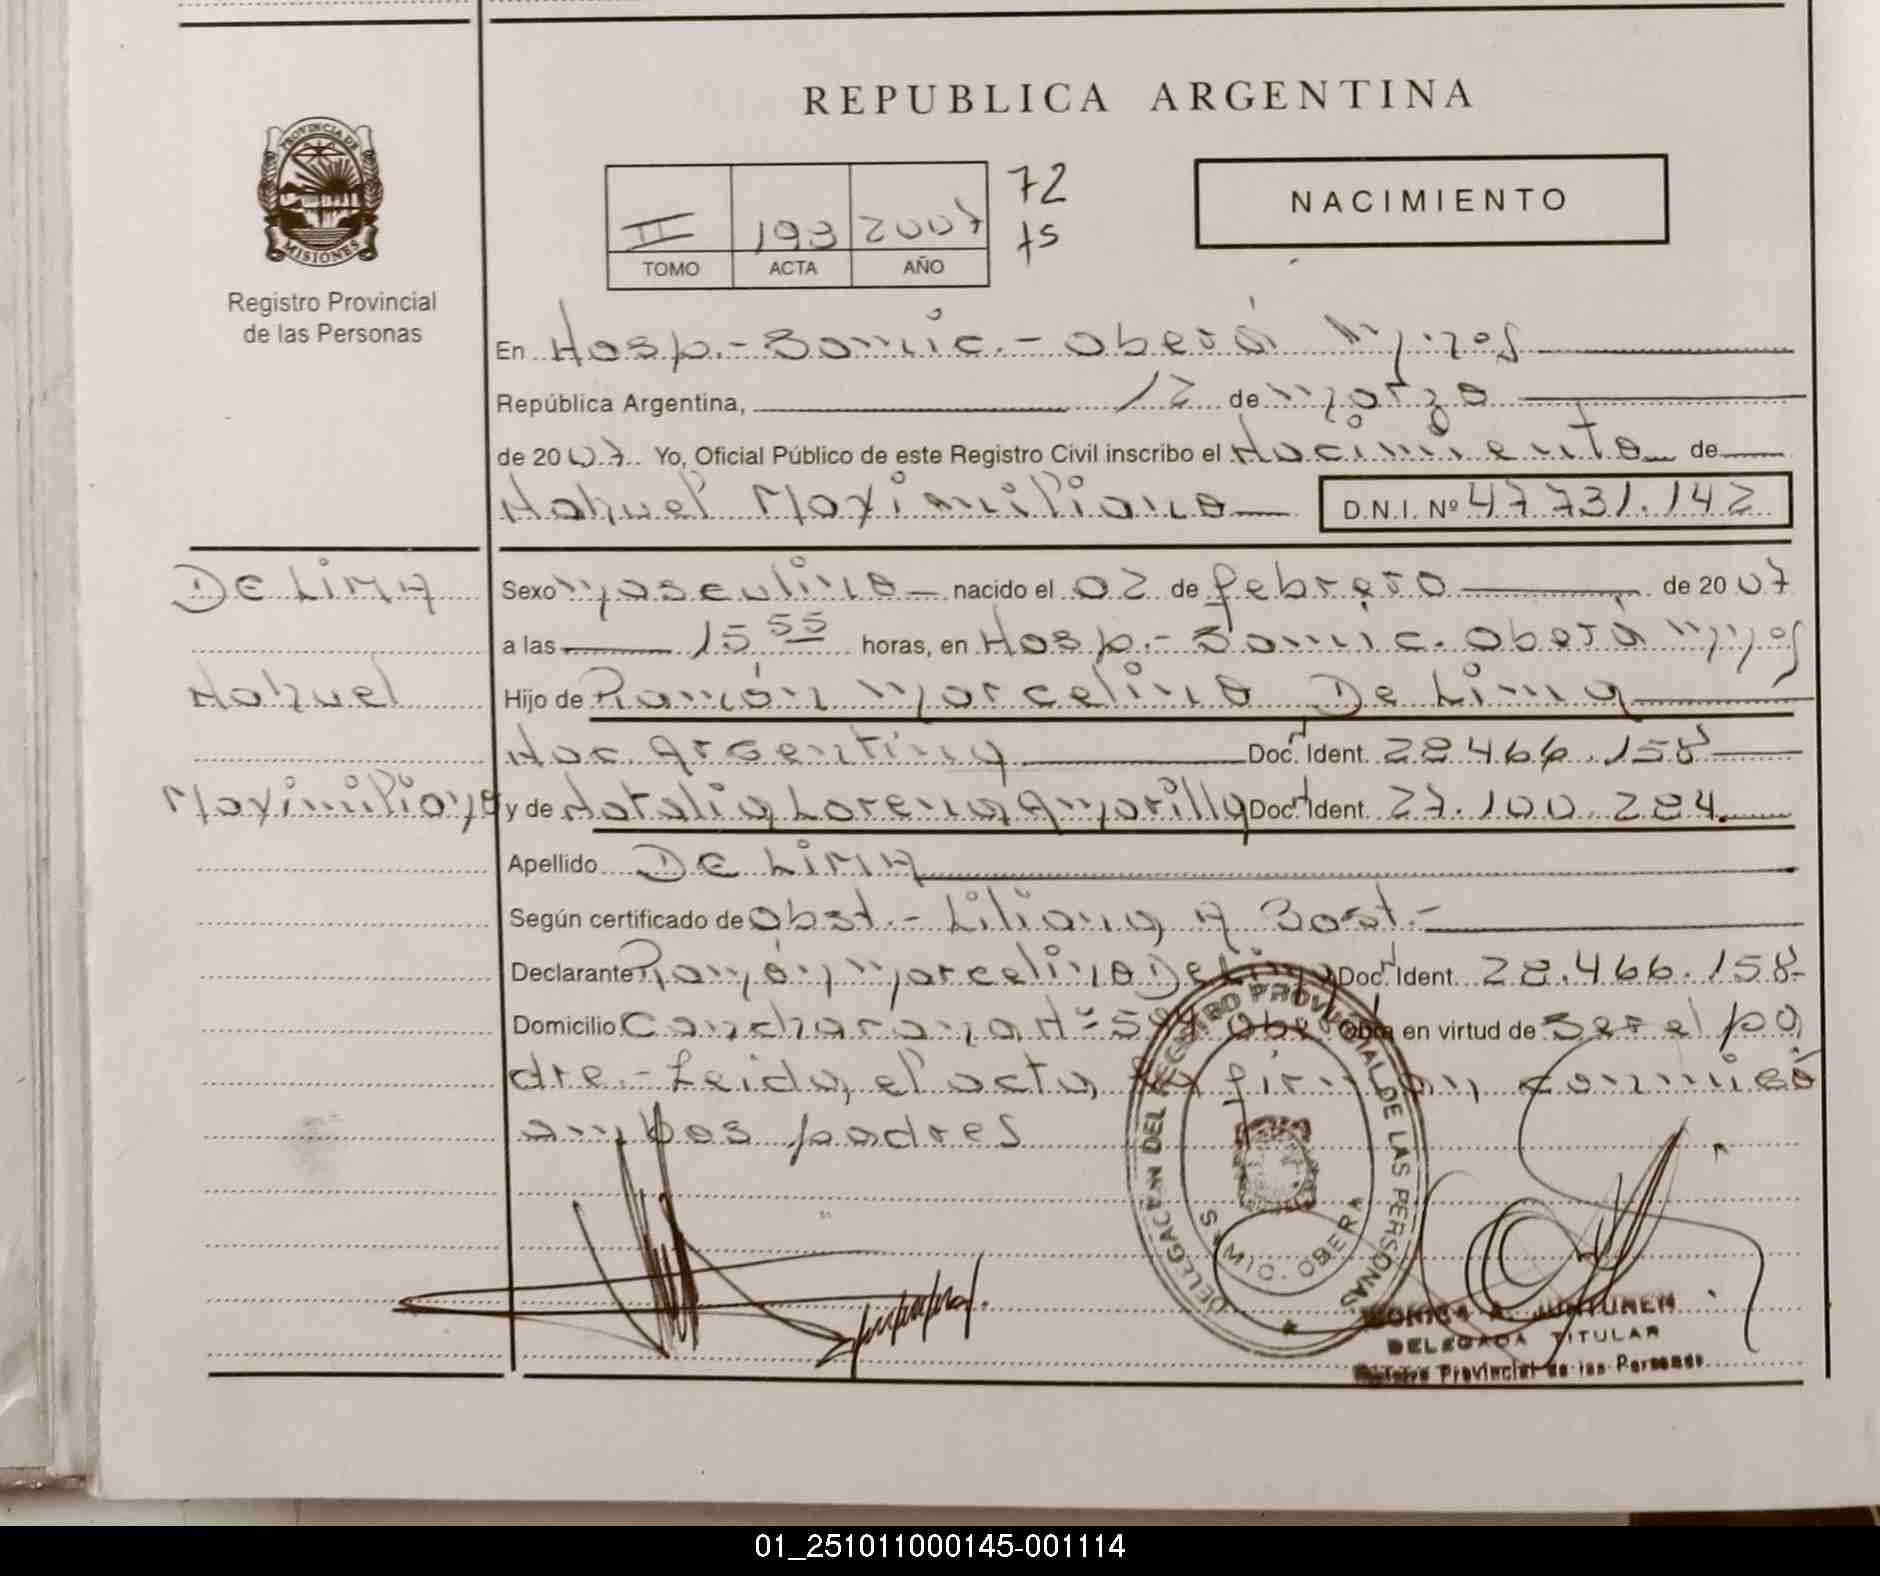 REPUBLICA ARGENTINA
PROVINCIA DE
MISIONES
Registro Provincial
de las Personas
II 193 2007 72
75
TOMO ACTA AÑO
NACIMIENTO
En Hosp.- Samic.- Oberá Mnes
República Argentina, 12 de Marzo
de 2007. Yo, Oficial Público de este Registro Civil inscribo el Nacimiento de
Nahuel Maximiliano D.N.I. Nº 47.731.142
DE LIMA Sexo Masculino nacido el 02 de febrero de 2007
a las 15 55 horas, en Hosp.- Samic. Oberá Mnes
Nahuel Hijo de Ramón Marcelino De Lima
Nac. Argentina Doc. Ident. 28.466.158
Maximiliano y de Natalia Lorena Amarilla Doc. Ident. 27.100.284.
Apellido DE LIMA
Según certificado de Obst.- Liliana A Bast.-
Declarante Ramón Marcelino De Lima Doc. Ident. 28.466.158-
Domicilio Nº Obra en virtud de Ser el pa
dre.- Leida el acta, la firman conmigo
ambos padres
DELEGACION DEL REGISTRO PROVINCIAL DE LAS PERSONAS
MIO. OBERA
MONICA A. JUNTUNEN
DELEGADA TITULAR
Registro Provincial de las Personas
01_251011000145-001114